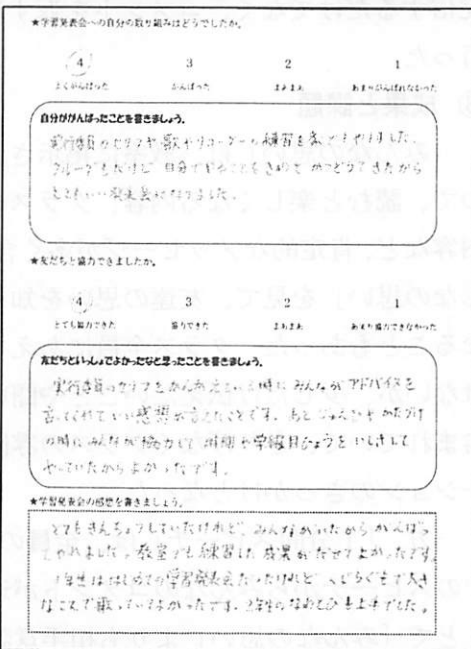 ★学習発表会への自分の取り組みはどうでしたか。
4 3 2 1
よくがんばった がんばった まあまあ あまりがんばれなかった
自分ががんばったことを書きましょう。
実行委員のセリフや歌やリコーダーの練習を家でもやりました。
グループもだけど自分でやることをきめて
とてもいい発表会になりました。
★友だちと協力できましたか。
4 3 2 1
とても協力できた 協力できた まあまあ あまり協力できなかった
友だちといっしょでよかったなと思ったことを書きましょう。
実行委員のセリフをかんがえている時にみんながアドバイスを
言ってくれていい感想が言えたことです。あとじゅんびやかたづけ
の時にみんなが協力して 学級目ひょうをいしきして
やっていたからよかったです。
★学習発表会の感想を書きましょう。
とてもきんちょうしていたけれど、みんながいたからがんばっ
てやれました。教室でも練習した成果がだせてよかったです。
1年生ははじめての学習発表会だったけれど 大き
なこえで歌っていてよかったです。2年生のなわとびも上手でした。